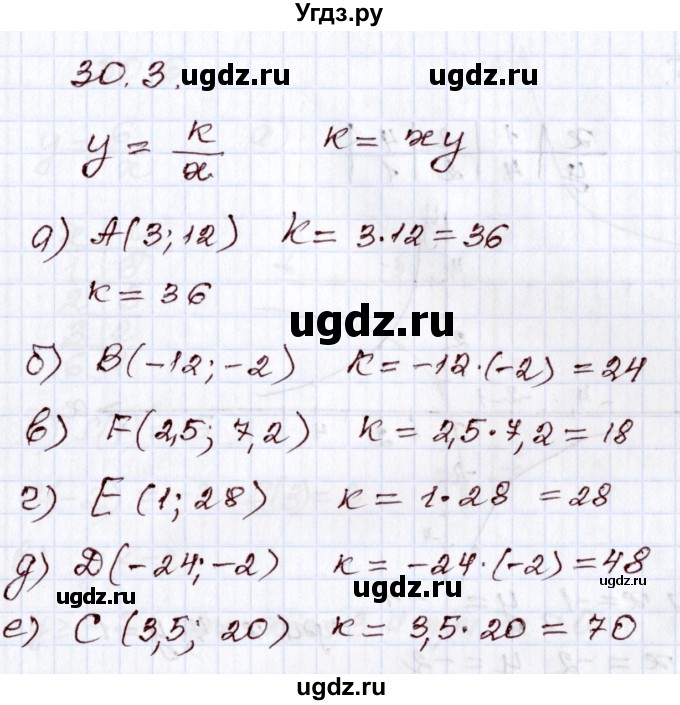 Угдз.ру
30.3. ugdz.ru
y = k/x k = xy
а) A(3; 12) k = 3·12 = 36
k = 36
ugdz.ru
б) B(-12; -2) k = -12·(-2) = 24
в) F(2,5; 7,2) k = 2,5·7,2 = 18
г) E(1; 28) k = 1·28 = 28
д) D(-24; -2) k = -24·(-2) = 48
ugdz.ru ugdz.ru ugdz.ru
е) C(3,5; 20) k = 3,5·20 = 70
ugdz.ru
ugdz.ru